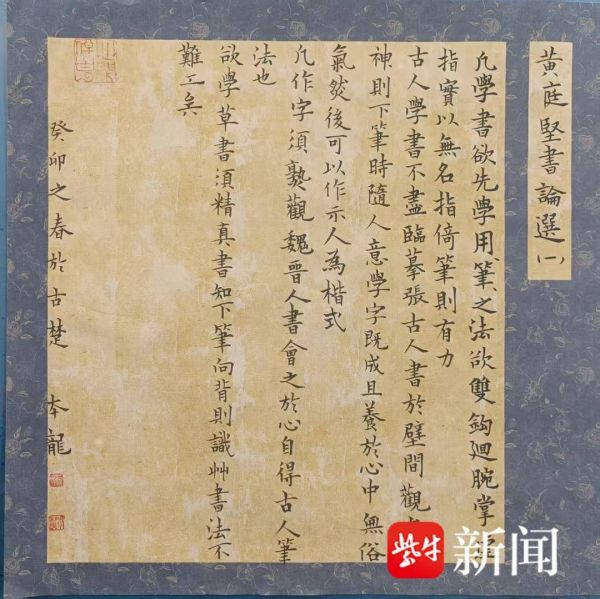 黃庭堅書論選(一)
凡學書欲先學用筆〻之法欲雙鈎廻腕掌虛
指實以無名指倚筆則有力
古人學書不盡臨摹張古人書於壁間觀
神則下筆時隨人意學字既成且養於心中無俗
氣然後可以作示人為楷式
凡作字須熟觀魏晉人書會之於心自得古人筆
法也
欲學草書須精真書知下筆向背則識艸書法不
難工矣
癸卯之春於古楚 本龍
紫牛新闻